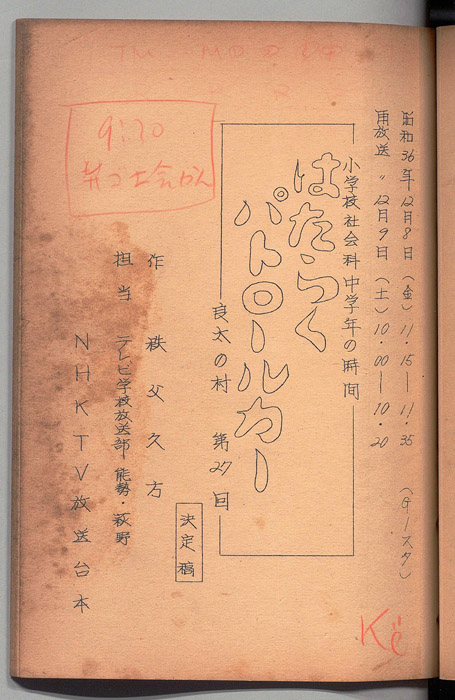 昭和36年12月8日(金)11.15―11.35 (Gースタ)
再放送 〃 12月9日(土)10.00―10.20
小学校社会科中学年の時間
はたらく
パトロールカー
良太の村 第27回
決定稿
作 秩父久方
担当 テレビ学校放送部 能勢・萩野
NHKTV放送台本